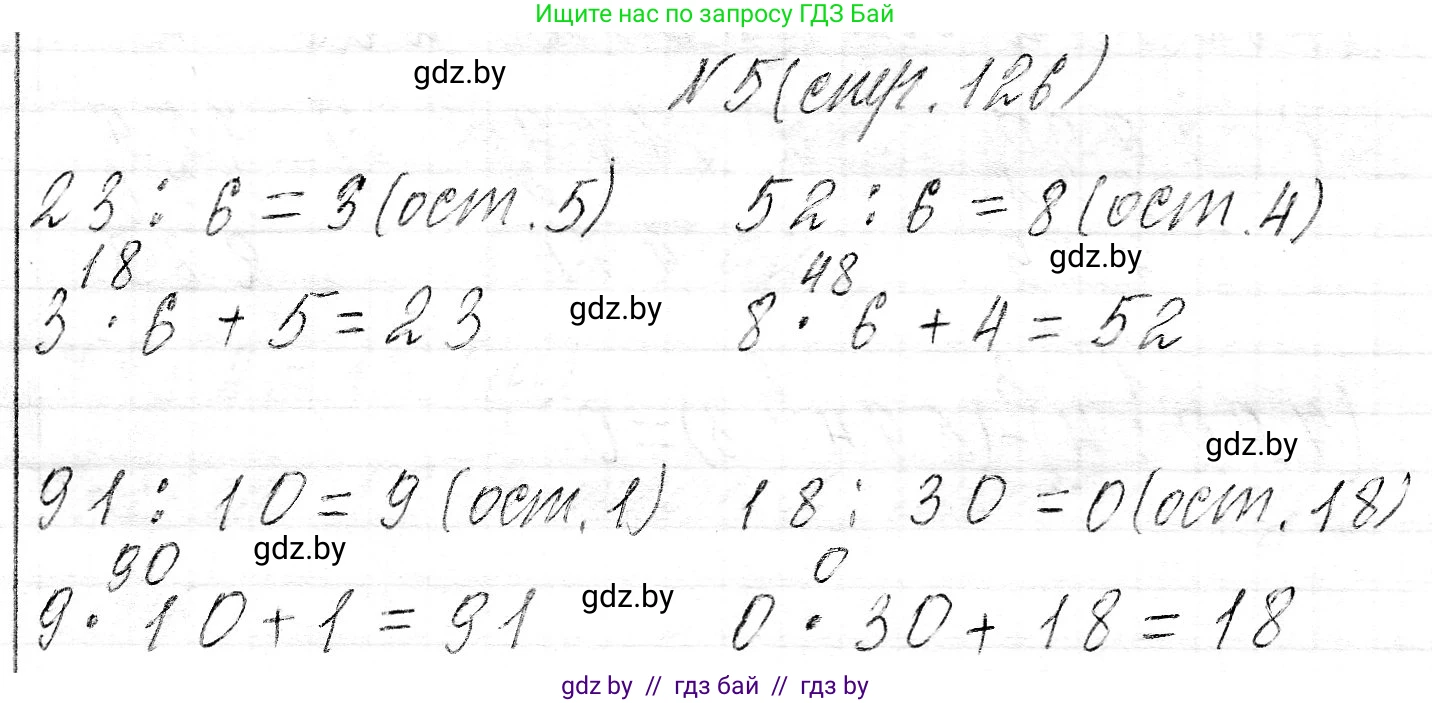 Ищите нас по запросу ГДЗ Бай
gdz.by
№5 (стр. 126)
23 : 6 = 3 (ост. 5) 52 : 6 = 8 (ост. 4)
gdz.by
18 48
3 · 6 + 5 = 23 gdz.by 8 · 6 + 4 = 52
gdz.by
91 : 10 = 9 (ост. 1) 18 : 30 = 0 (ост. 18)
gdz.by
90 0
9 · 10 + 1 = 91 gdz.by 0 · 30 + 18 = 18
gdz by // гдз бай // гдз by